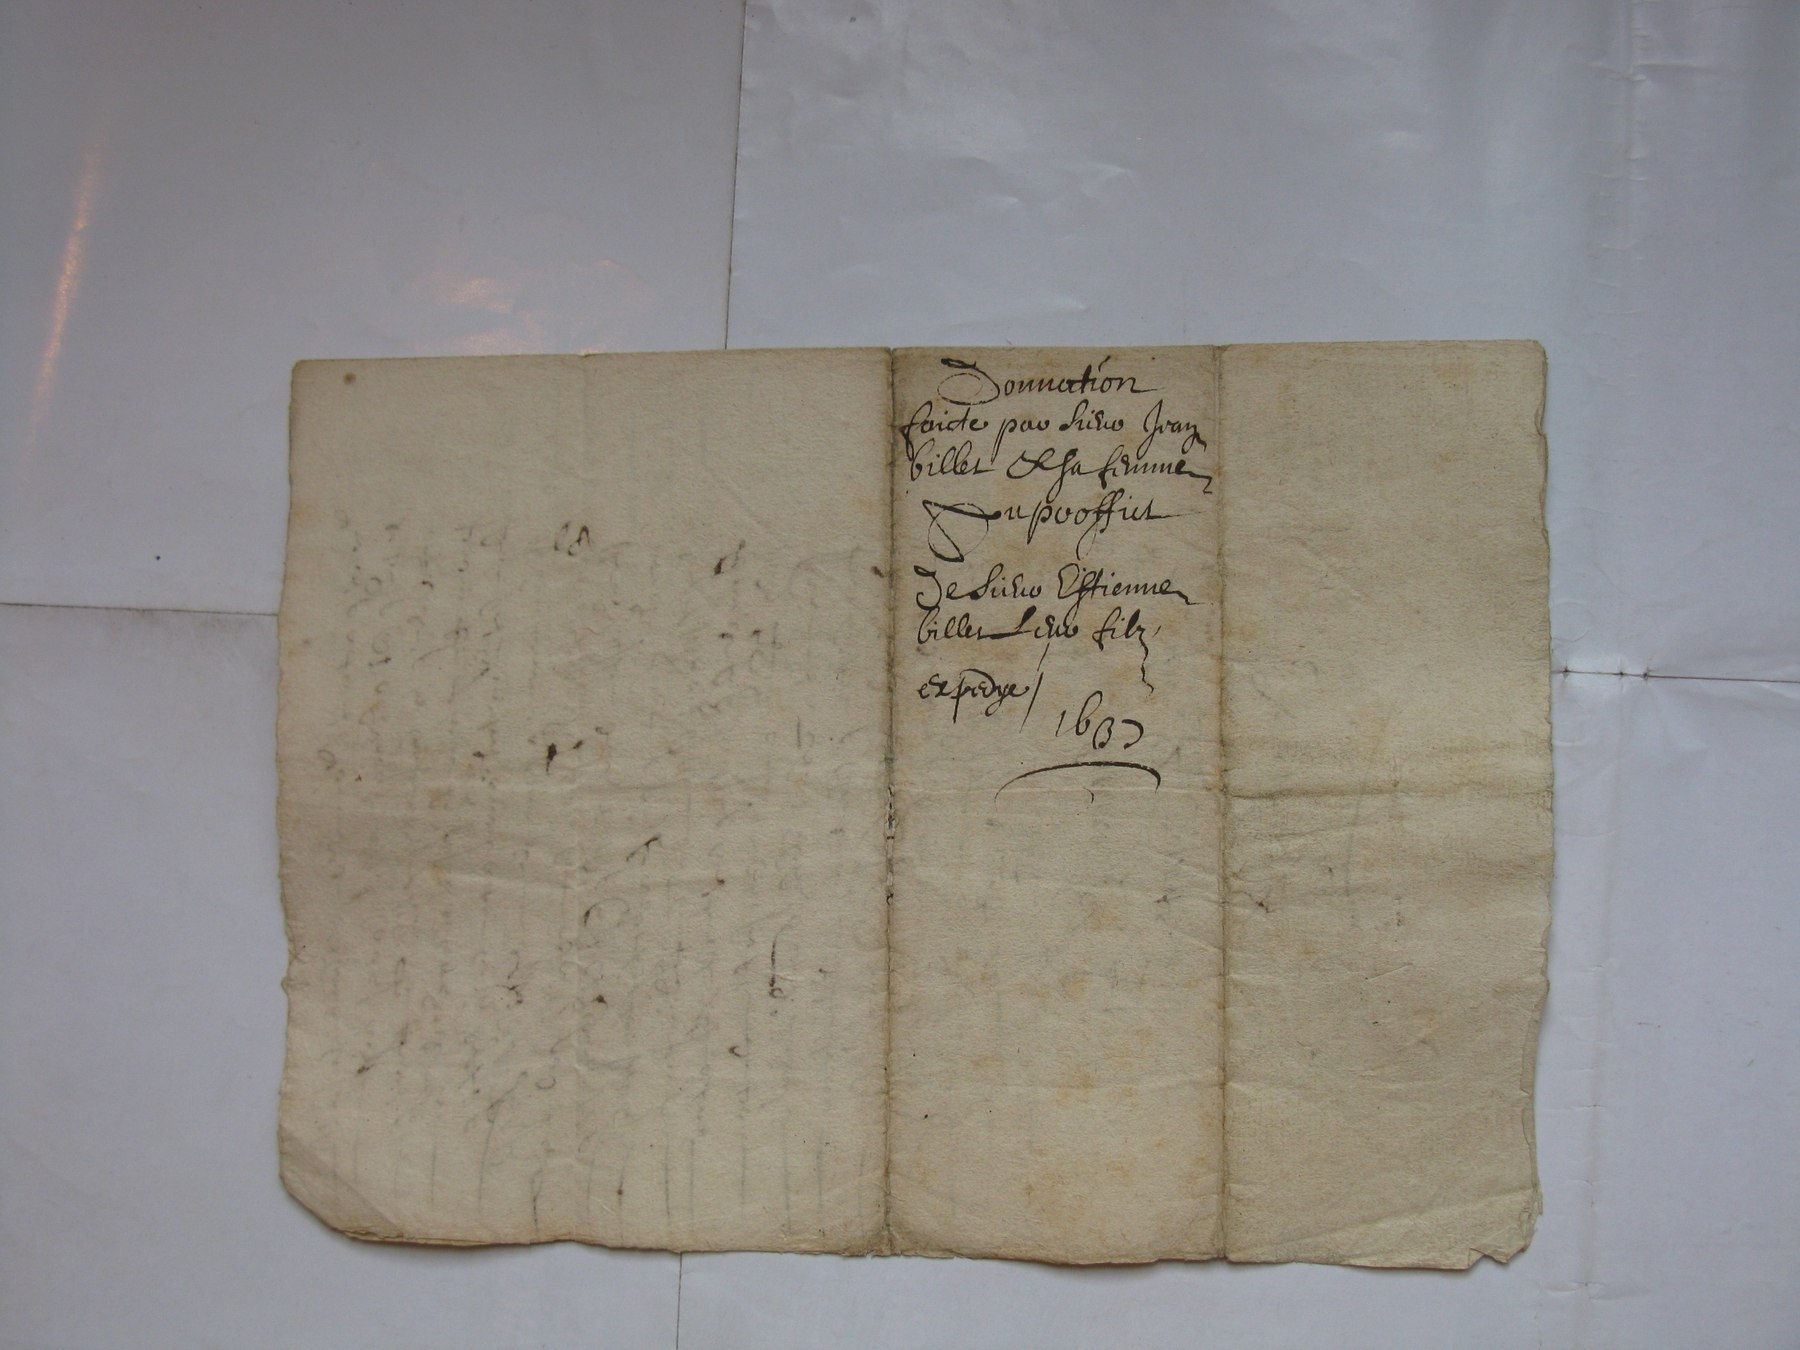 Donnation
faicte par Sieur Jean
billet & sa femme
Au proffict
De Sieur Estienne
billet Leur filz
expedye /
1637